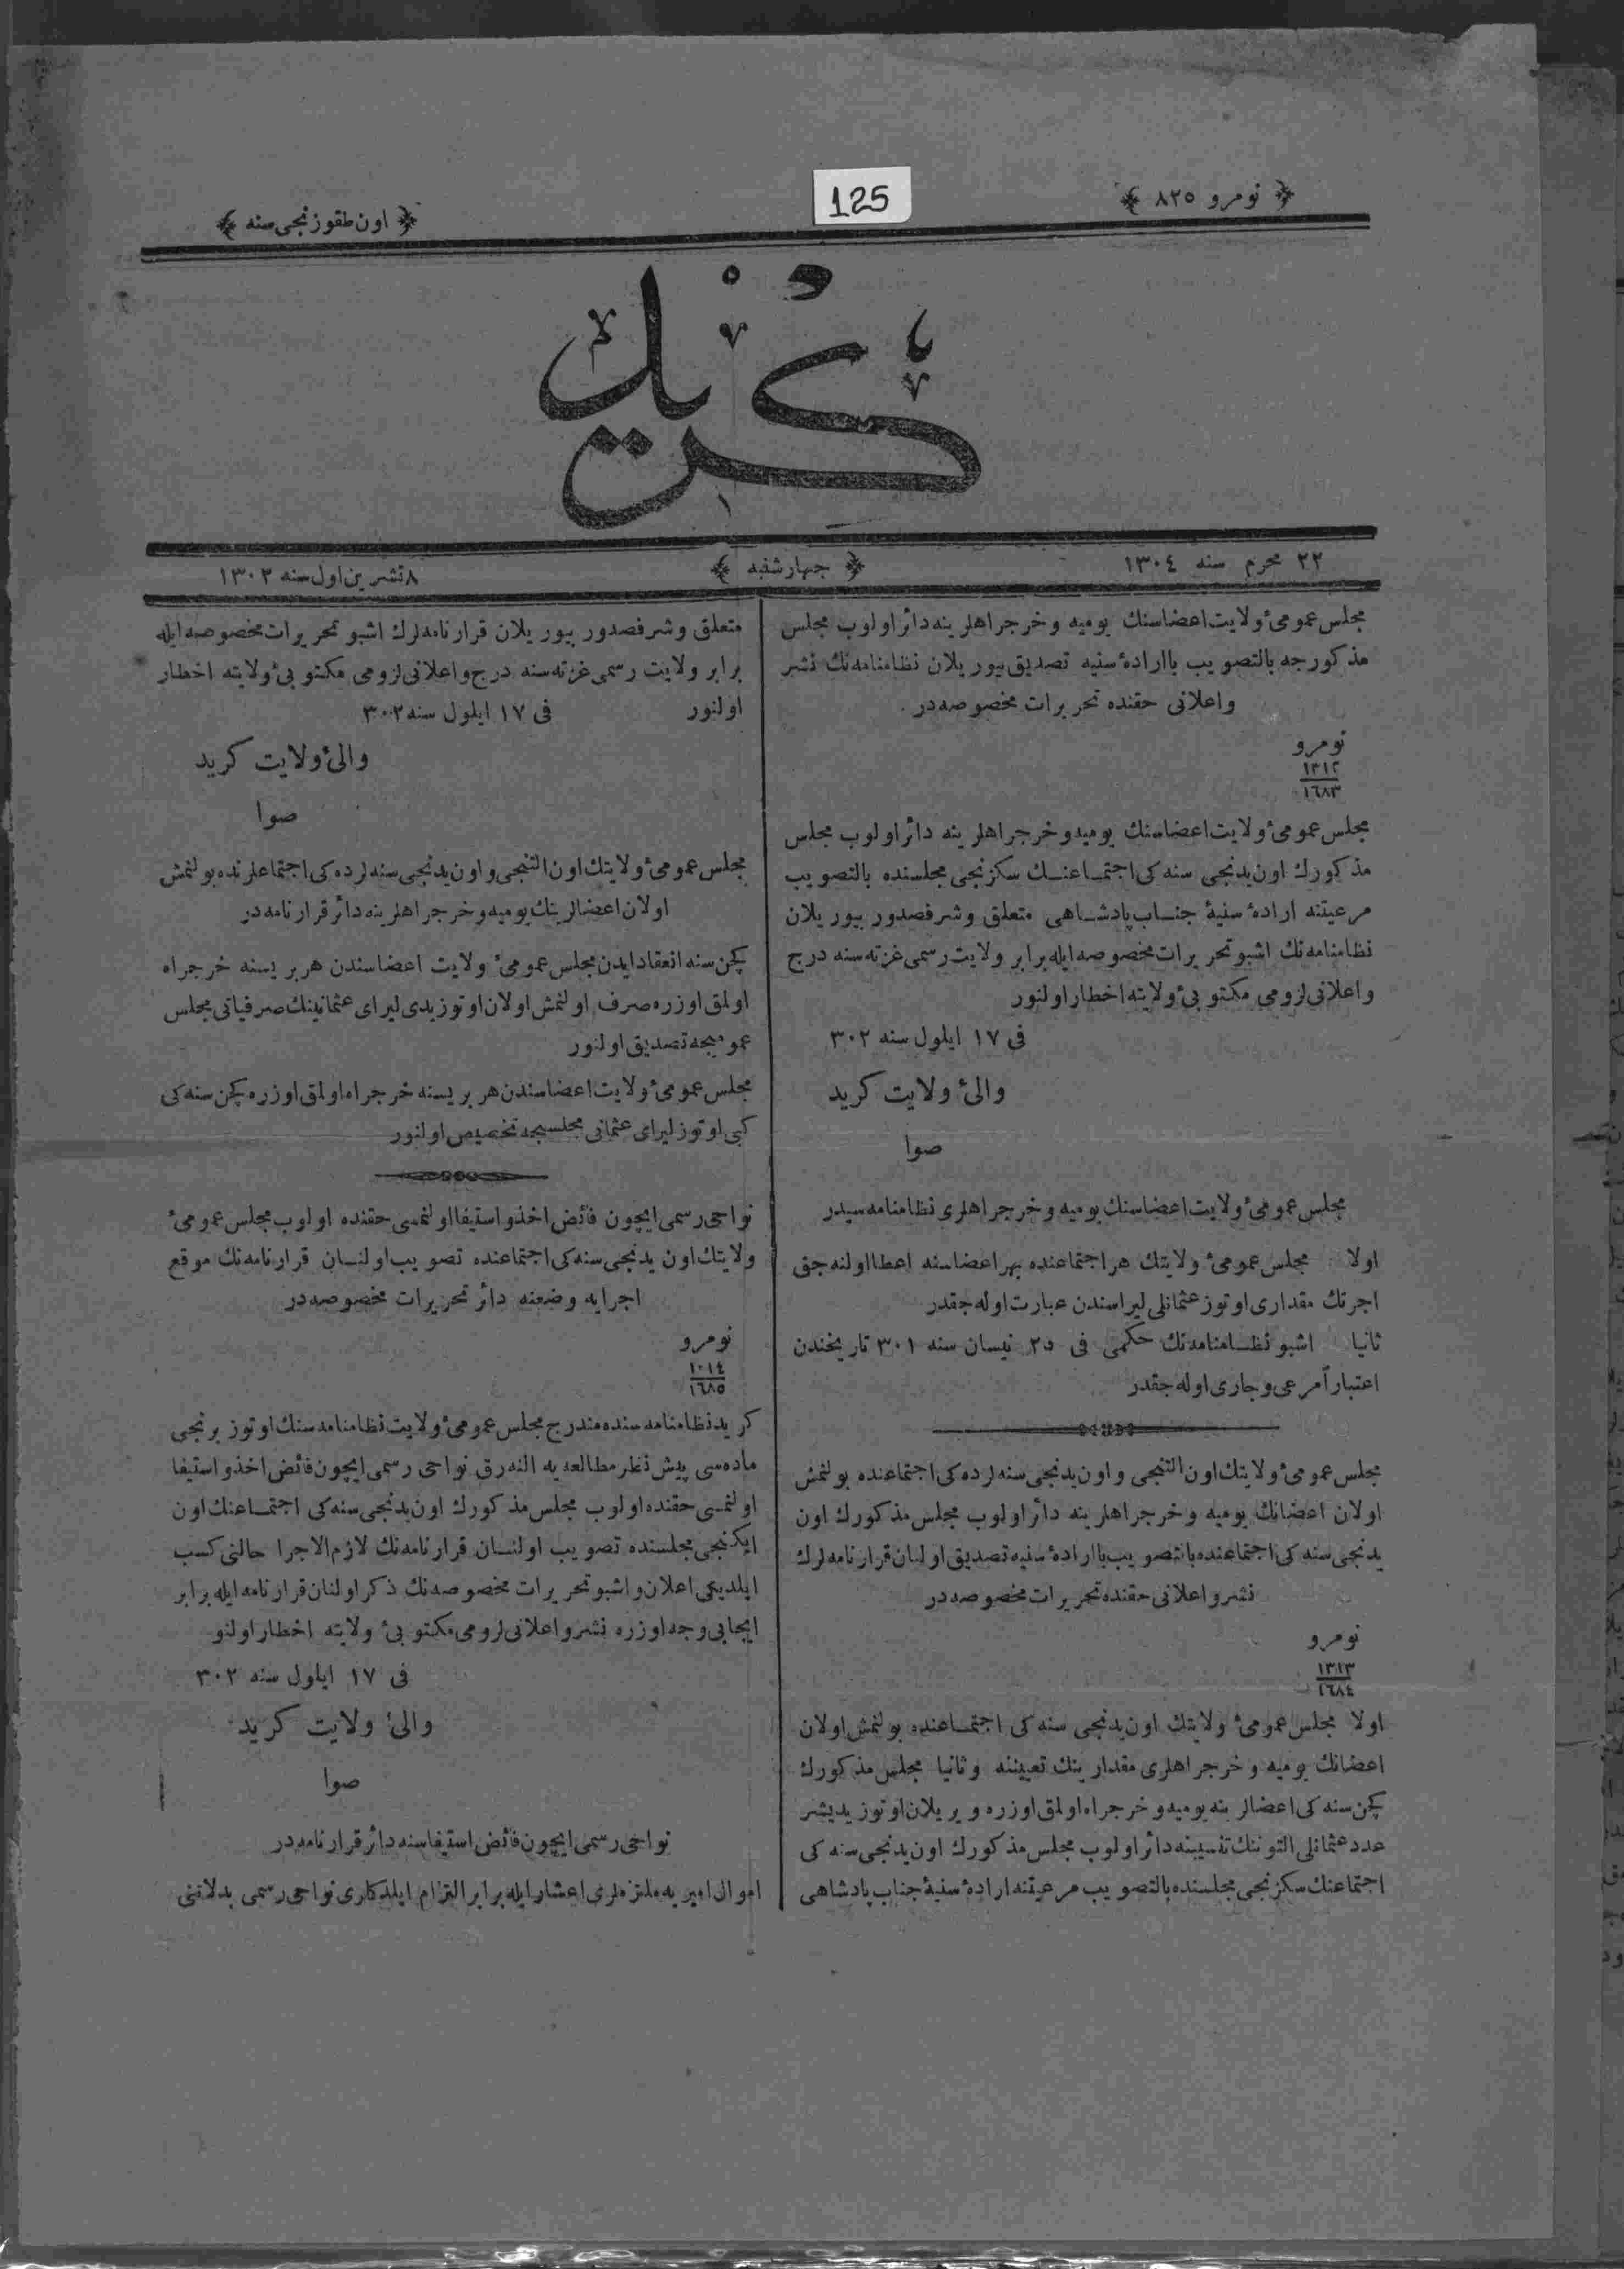 نومرو ٨٢٥
125
اون طقوزنجی سنه
كريد
٢٢ محرم سنه ١٣٠٤
چهارشنبه
٨ تشرين اول سنه ١٣٠٢
مجلس عمومئ ولايت اعضاسنك يوميه و خرجراهلرينه دائر اولوب مجلس
مذكورجه بالتصويب با ارادۀ سنيه تصديق بيوريلان نظامنامه نك نشر
واعلانی حقنده تحريرات مخصوصه در .
نومرو
١٣١٢
١٦٨٣
مجلس عمومئ ولايت اعضاسنك يوميه و خرجراهلرينه دائر اولوب مجلس
مذكورك اون يدنجی سنه كی اجتماعنك سكزنجی مجلسنده بالتصويب
مرعيتنه ارادۀ سنيۀ جناب پادشاهی متعلق و شرفصدور بيوريلان
نظامنامه نك اشبو تحريرات مخصوصه ايله برابر ولايت رسمی غزته سنه درج
و اعلانی لزومی مكتوبئ ولايته اخطار اولنور
فی ١٧ ايلول سنه ٣٠٢
والئ ولايت كريد
صوا
مجلس عمومئ ولايت اعضاسنك يوميه و خرجراهلری نظامنامه سيدر
اولا مجلس عمومئ ولايتك هر اجتماعنده بهر اعضاسنه اعطا اولنه جق
اجرتك مقداری اوتوز عثمانلی ليراسندن عبارت اوله جقدر
ثانيا اشبو نظامنامه نك حكمی فی ٢٥ نيسان سنه ٣٠١ تاريخندن
اعتباراً مرعی و جاری اوله جقدر
مجلس عمومئ ولايتك اون التنجی و اون يدنجی سنه لرده كی اجتماعنده بولنمش
اولان اعضانك يوميه و خرجراهلرينه دائر اولوب مجلس مذكورك اون
يدنجی سنه كی اجتماعنده بالتصويب با ارادۀ سنيه تصديق اولنان قرارنامه لرك
نشر و اعلانی حقنده تحريرات مخصوصه در
نومرو
١٣١٣
١٦٨٤
اولا مجلس عمومئ ولايتك اون يدنجی سنه كی اجتماعنده بولنمش اولان
اعضانك يوميه و خرجراهلری مقدارينك تعييننه و ثانيا مجلس مذكورك
كچن سنه كی اعضالرينه يوميه و خرجراه اولمق اوزره ويريلان اوتوز يديشر
عدد عثمانلی التوننك دائر اولوب مجلس مذكورك اون يدنجی سنه كی
اجتماعنك سكزنجی مجلسنده بالتصويب مرعيتنه ارادۀ سنيۀ جناب پادشاهی
متعلق و شرفصدور بيوريلان قرارنامه لرك اشبو تحريرات مخصوصه ايله
برابر ولايت رسمی غزته سنه درج و اعلانی لزومی مكتوبئ ولايته اخطار
اولنور فی ١٧ ايلول سنه ٣٠٢
والئ ولايت كريد
صوا
مجلس عمومئ ولايتك اون التنجی و اون يدنجی سنه لرده كی اجتماعلرنده بولنمش
اولان اعضالرينك يوميه و خرجراهلرينه دائر قرارنامه در
كچن سنه انعقاد ايدن مجلس عمومئ ولايت اعضاسندن هر بريسنه خرجراه
اولمق اوزره صرف اولنمش اولان اوتوز يدی ليرای عثمانينك صرفياتی مجلس
عموميجه تصديق اولنور
مجلس عمومئ ولايت اعضاسندن هر بريسنه خرجراه اولمق اوزره كچن سنه كی
كبی اوتوز ليرای عثمانی مجلسيجه تخصيص اولنور
نواحی رسمی ايچون فائض اخذ و استيفا اولنمسی حقنده اولوب مجلس عمومئ
ولايتك اون يدنجی سنه كی اجتماعنده تصويب اولنان قرارنامه نك موقع
اجرايه وضعنه دائر تحريرات مخصوصه در
نومرو
١٠١٤
١٦٨٥
كريد نظامنامه سنده مندرج مجلس عمومئ ولايت نظامنامه سنك اوتوز برنجی
ماده سی پيش نظر مطالعه يه النه رق نواحی رسمی ايچون فائض اخذ و استيفا
اولنمسی حقنده اولوب مجلس مذكورك اون يدنجی سنه كی اجتماعنك اون
ايكنجی مجلسنده تصويب اولنان قرارنامه نك لازم الاجرا حالنی كسب
ايلديكی اعلان و اشبو تحريرات مخصوصه نك ذكر اولنان قرارنامه ايله برابر
ايجابی وجه اوزره نشر و اعلانی لزومی مكتوبئ ولايته اخطار اولنو
فی ١٧ ايلول سنه ٣٠٢
والئ ولايت كريد
صوا
نواحی رسمی ايچون فائض استيفاسنه دائر قرارنامه در
اموال اميريه ملتزملری اعشار ايله برابر التزام ايلدكلری نواحی رسمی بدلاتنی